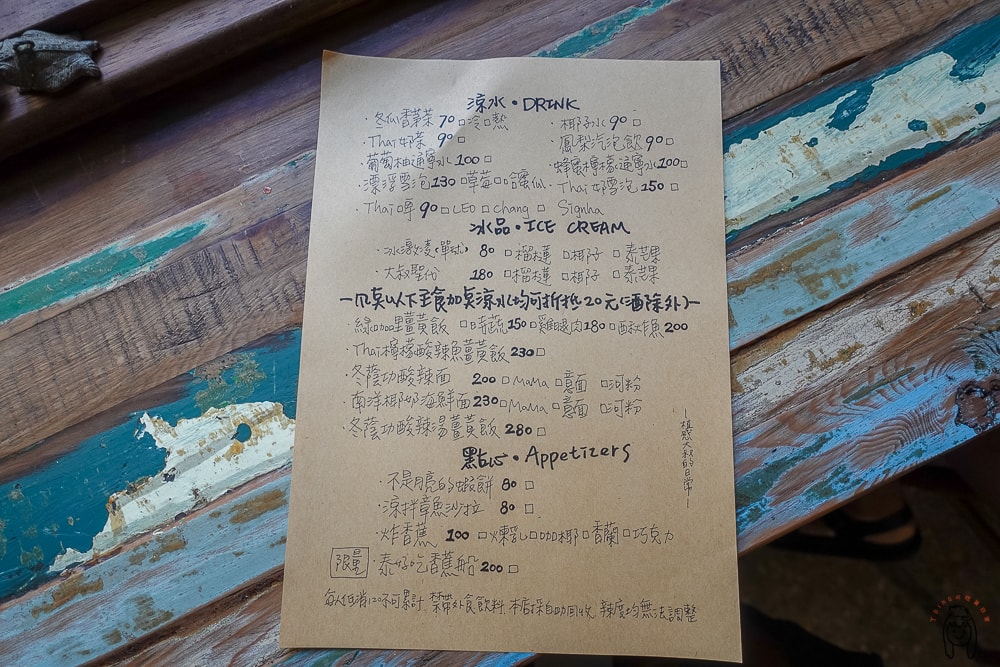 涼水·DRINK
·冬瓜香茅茶 70 □冷□熱 ·椰子水 90 □
·Thai奶茶 90 □ ·鳳梨汽泡飲 90 □
·葡萄柚通寧水 100 □ ·蜂蜜檸檬通寧水 100 □
·漂浮雪泡 130 □草莓 □哈蜜瓜 ·Thai奶雪泡 150 □
·Thai啤 90 □ LEO □ chang □ Signha
冰品·ICE CREAM
·冰淇淋(單球) 80 □榴槤 □椰子 □泰芒果
·大叔聖代 180 □榴槤 □椰子 □泰芒果
—凡點以下主食加點涼水均可折抵20元(酒除外)—
·綠咖哩薑黃飯 □時蔬150 □雞腿肉180 □酥魚 200
·Thai檸檬酸辣魚薑黃飯 230 □
·冬蔭功酸辣面 200 □ MaMa □意面 □河粉
·南洋椰奶海鮮面 230 □ MaMa □意面 □河粉
·冬蔭功酸辣湯薑黃飯 280 □
點心·Appetizers
·不是月亮的蝦餅 80 □
·涼拌章魚沙拉 80 □
·炸香蕉 100 □煉乳 □咖椰 □香蘭 □巧克力
限量 ·泰好吃香蕉船 200 □
每人低消120不可累計.禁帶外食飲料.本店採自助回收.辣度均無法調整
大叔的日常—